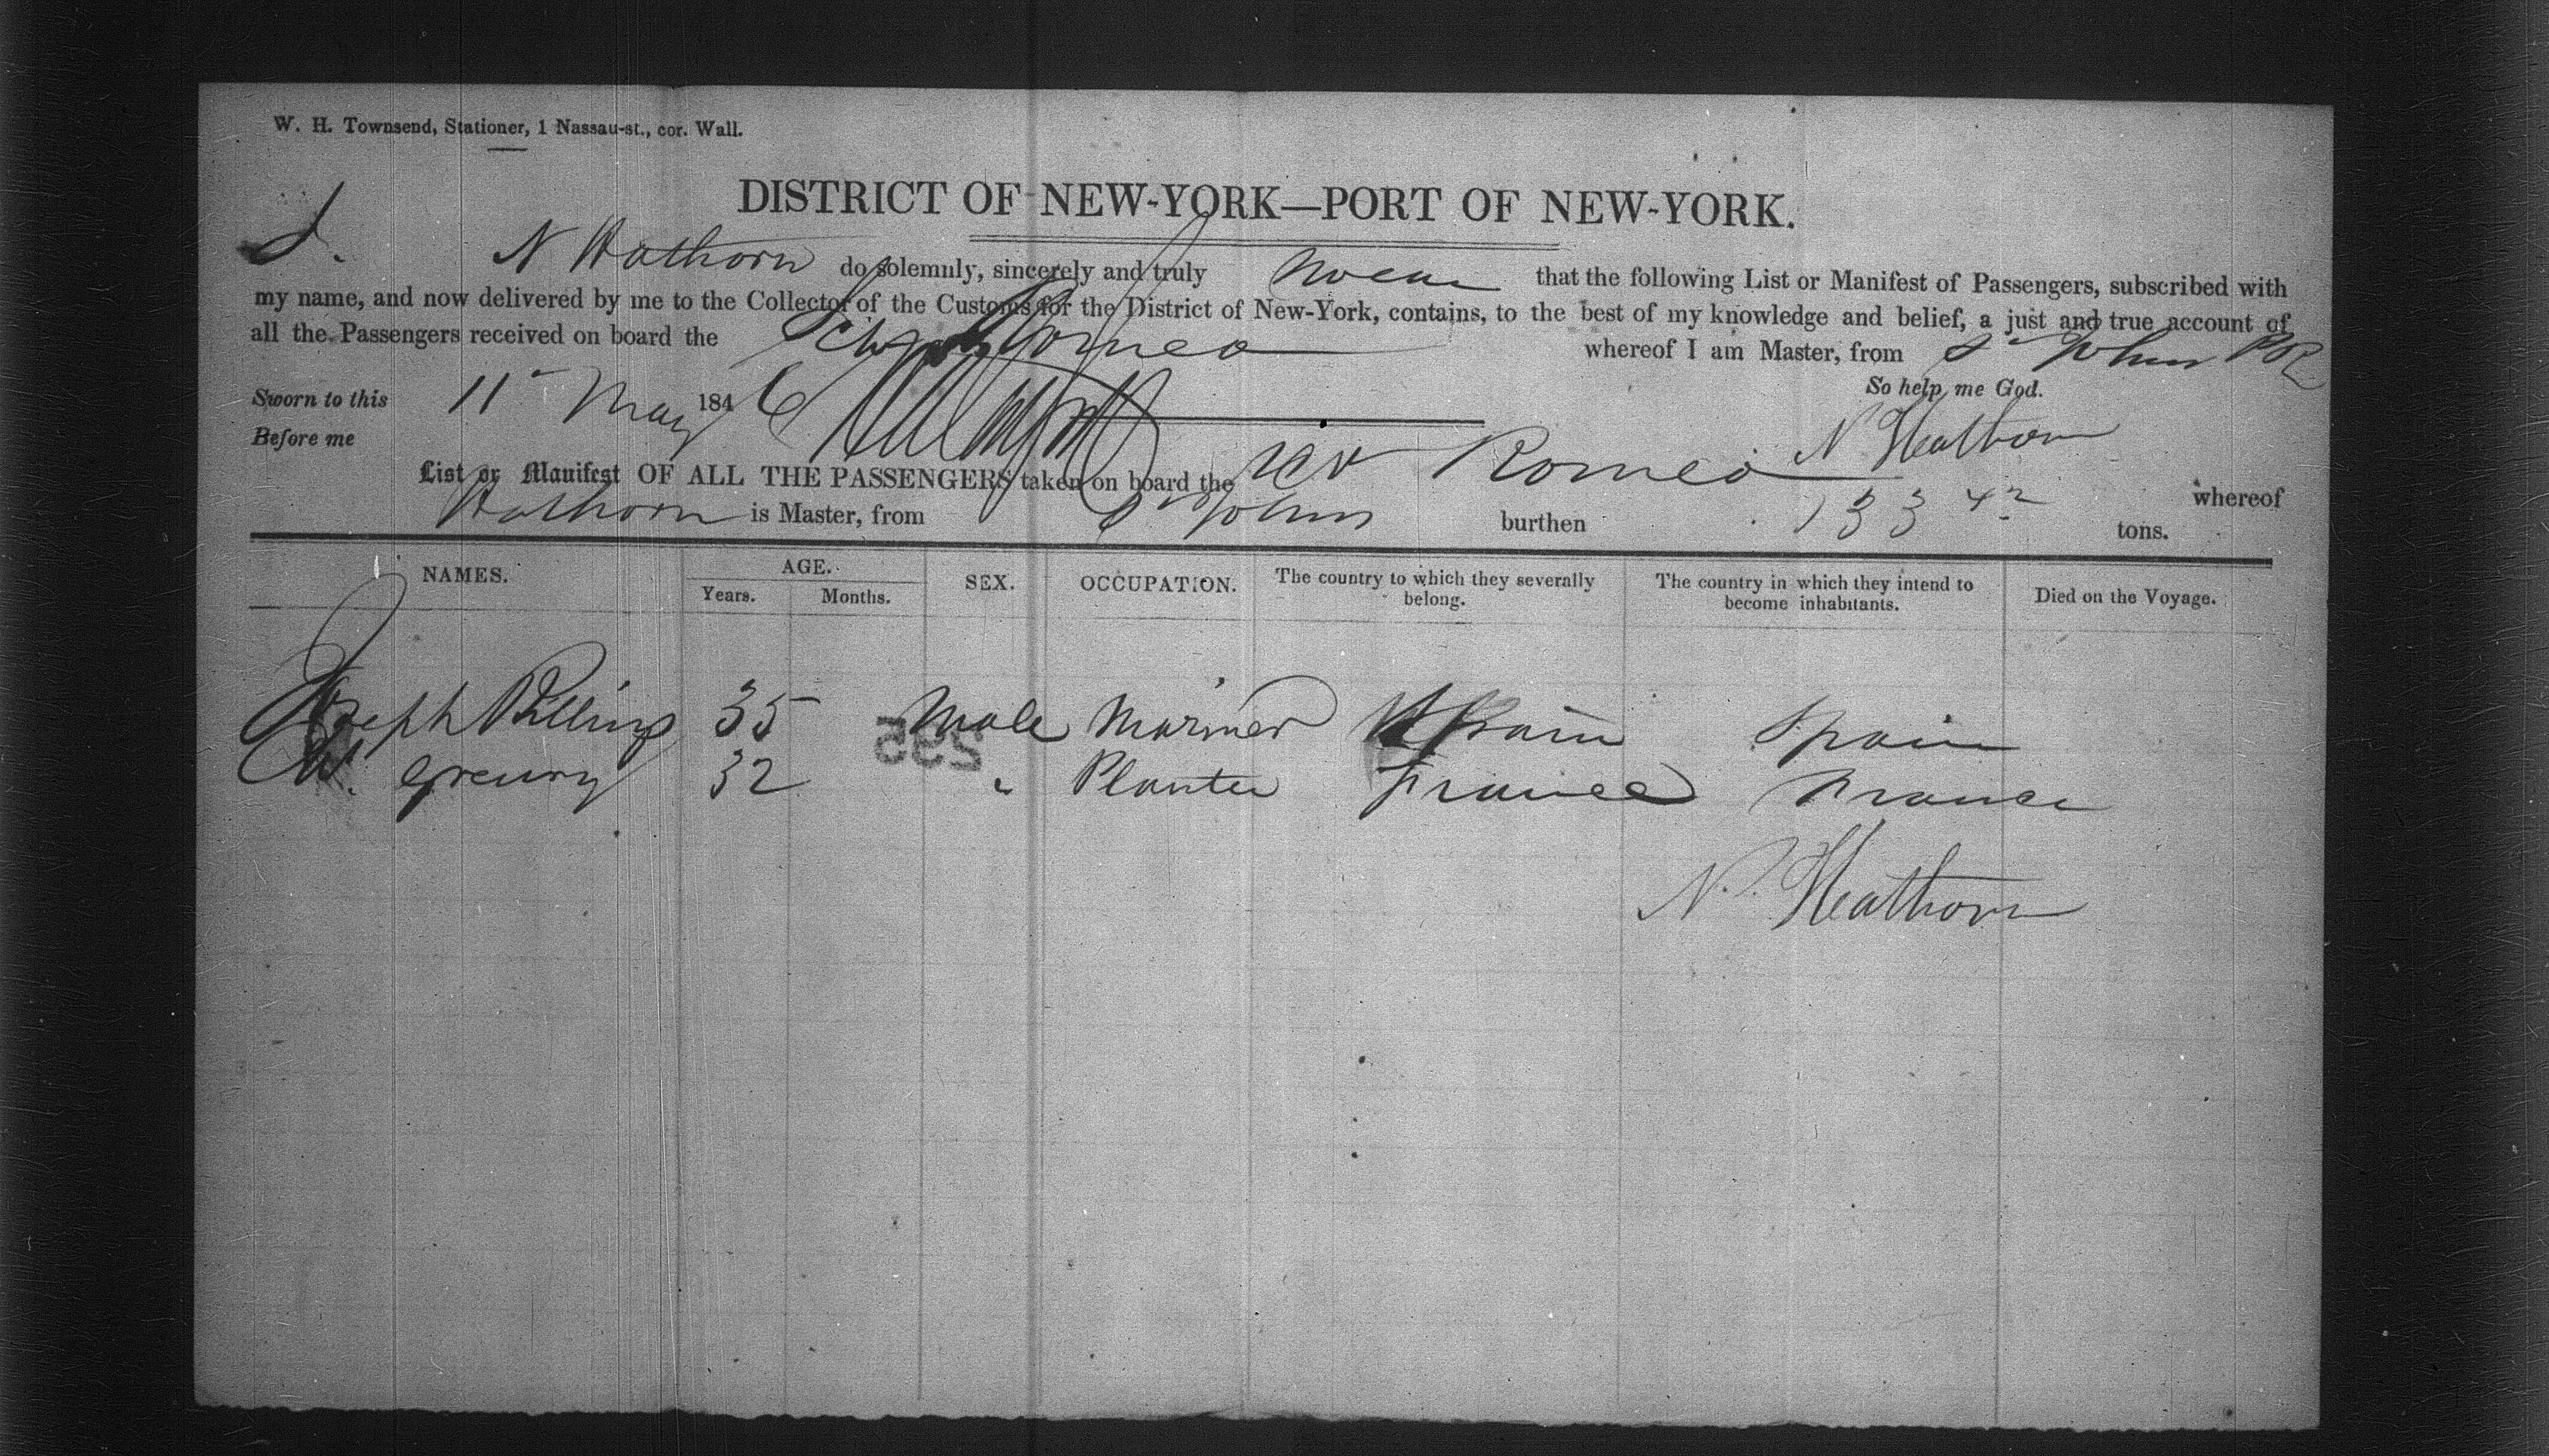 W. H. Townsend, Stationer, 1 Nassau-st., cor. Wall.
DISTRICT OF NEW-YORK—PORT OF NEW-YORK.
I. N Hathorn do solemnly, sincerely and truly swear that the following List or Manifest of Passengers, subscribed with
my name, and now delivered by me to the Collector of the Customs for the District of New-York, contains, to the best of my knowledge and belief, a just and true account of
all the Passengers received on board the Schr Romeo whereof I am Master, from St Johns PR
Sworn to this 11 May 1846 So help me God.
Before me N Heathorn
List or Manifest OF ALL THE PASSENGERS taken on board the Schr Romeo whereof
Hathorn is Master, from St Johns burthen 133 42 tons.
NAMES. AGE. SEX. OCCUPATION. The country to which they severally belong. The country in which they intend to become inhabitants. Died on the Voyage.
Years. Months.
Joseph Billings 35 Male Mariner Spain Spain
295
W. 32 " Planter France France
N. Heathorn